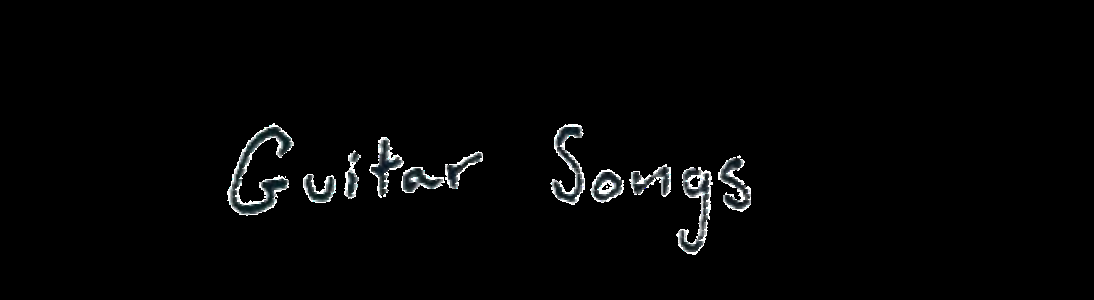 Guitar Songs